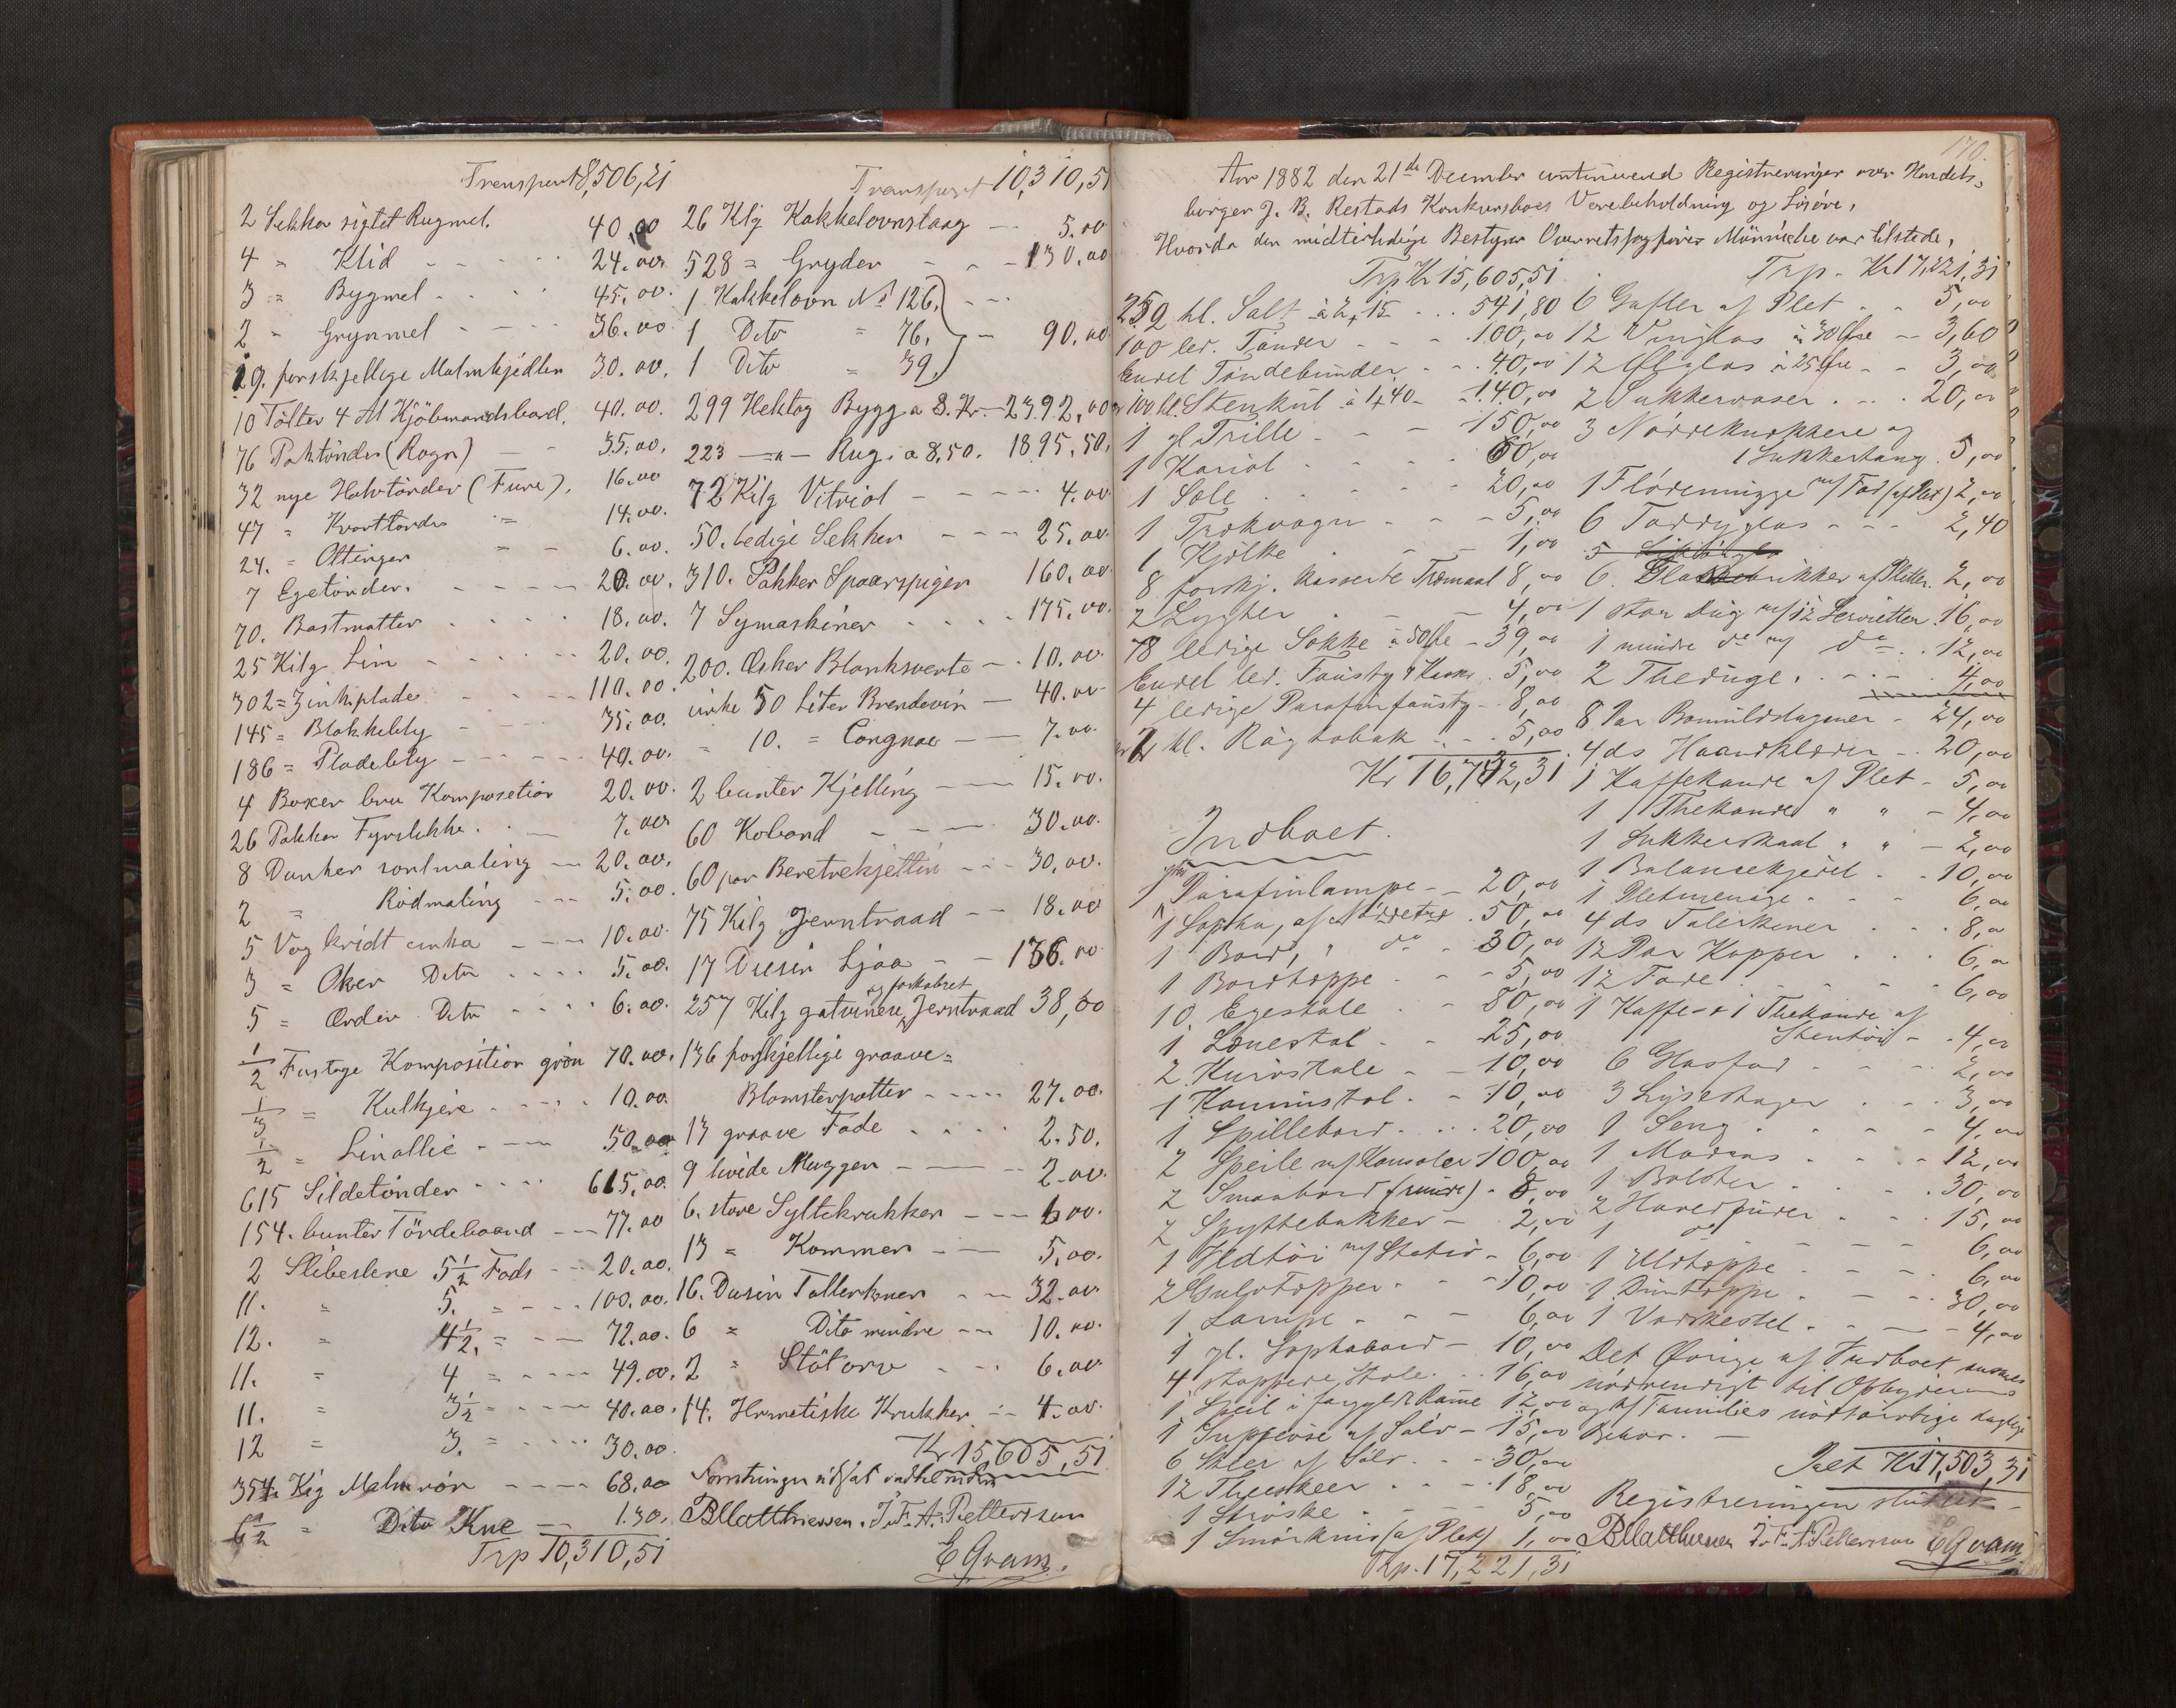 Transport 8,506,21
2 Sekker sigtet Rugmel. 40.00
4 " Klid - - - - - 24.00
3 = Bygmel - - - - 45.00.
2 - Grynmel - - - - 36.00
19. forskjellige Malmkjedler 30.00.
10 Tolter 4 Al Kjöbmandsbord. 40.00.
76 Paktönder (Rogn) - - 35.00.
32 nye Halvtönder (Furu). 16.00
47 = Kvarttönder = 14.00.
24. = Ottinger = - 6.00.
7 Egetönder. - - - - 20.00.
70. Bastmatter - - - - 18.00.
25 Kilg. Lin - - - - - 20.00.
302 = Zinkplade - - - - 110.00.
145 = Blokkebly - - - - 35.00.
186 = Pladebly - - - - 40.00.
4 Boxer bru Komposetion 20.00.
26 Pakker Fyrstikke. - - 7.00
8 Dunker sortmaling - - 20.00.
2 = Rödmaling - - 5.00.
5 Vog kridt cirka - - - 10.00.
3 = Oker Dito - - - - 5.00.
5 = Dito - - - - 6.00.
1/2 Fustage Komposition grön 70.00.
1/3 = Kulkjere - - - - 10.00.
1/2 = Linollie - - - 50.00
615 Sildetönder - - - - 615.00.
154. bunter Töndebaand - - 77.00
2 Slibestene 5 1/2 Fods - - 20.00.
11. " 5. = - - - 100.00.
12. = 4 1/2. = - - - 72.00.
11. = 4 = - - - - 49.00.
11. = 3 1/2 = - - - - 40.00.
12 = 3. = - - - - 30.00.
354. Kig Malm - - - - 68.00
6 1/2 = Dito - - 1.30.
Trp 10,310,51
Transport 10,310,51
26 Klg Kakkelovnslaag - - 5.00
528 = Gryder - - - 130.00
1 Kakkelovn No 126. - - -
1 Dito = 76. - - 90.00
1 Dito = 39.
299 Hektog Bygg a 8. Kr. - 2392,00
223 - " - Rug. a 8,50. 1895,50.
72 Kilg Vitriol - - - - - 4.00
50. ledige Sekker - - - - 25.00
310. Pakker Spaarspiger 160.00
7 Symaskiner - - - - 175.00.
200. Æsker Blanksverte - - 10.00
cirka 50 Liter Brendevin - 40.00
= 10. = Congnac - - 7.00.
2 bunter Kjetting - - 15.00.
60 Koband - - - - 30.00.
60 par - - - 30.00.
75 Kilg Jerntraad - - 18.00
17 Dusin Ljaa - - 136.00
257 Kilg Jerntraad 38,60
136 forskjellige graave =
Blomsterpotter - - - - 27.00.
13 graave Fade - - - - 2.50.
9 hvide Mugger - - - - 2.00.
6. store Syltekrukker - - - 6.00.
13 = Kommer - - - 5,00.
16. Dusin Tallerkner - - 32.00.
6 = Dito mindre - - 10.00.
2 = - - - - 6.00
14. Hermetiske Krukker - - 4.00.
Kr 15,605,51
B Matthiessen. J. F. A. Pettersson
E Qvam.
170.
Aar 1882 den 21de December continuerend Registreringer over Handels-
borger J. B. Restads Konkursboes Varebeholdning og Lösöre,
Hvorda den midtertidige Bestyrer Overretssagförer Münniche var tilstede,
Trp Kr 15,605,51
252 hl. Salt à 2,15 - - - 541,80
100 led. Tönder - - - - 100,00
Endel Töndebunder - - - 40,00
100 hl. Stenkul à 1,40 - - 140,00
1 gl Trille - - - - 150,00
1 Kariol - - - - - 60,00
1 Sele - - - - - 20,00
1 Trækvogn - - - - 5,00
1 Kjælke - - - - 1,00
8 forskj. kasserte Tremaal 8,00
2 Lygter - - - - 4,00
78 ledige Sække à 50 Øre - 39,00
Endel led. Fustg & Kasser 5,00
4 ledige Parafinfustg - - 8,00
hl. Røgtobak - - - 5,00
Kr 16,732,31
Indboet.
1 Parafinlampe - - 20,00
1 Sopha, af Nöddetræ - 50,00
1 Bord, " do - 30,00
1 Bordteppe - - - 5,00
10. Egestole - - 80,00
1 Lænestol - - - 25,00
2 Kurvstole - - 10,00
1 Kaministol - - 10,00
1 Spillebord - - - 20,00
2 Speile m/ Konsoler 100,00
2 Smaabord (runde) - 8,00
2 Spyttebakker - - 2,00
1 Ildtöi m/ Stativ - 6,00
2 Gulvtepper - - - 10,00
1 Lampe - - - - 6,00
1 gl. Sophabord - 10,00
4 stoppede Stole - - 16,00
1 Speil i forgyldt Ramme 12,00
1 Suppeöse af Sölv - 15,00
6 Skeer af Sölv - - 30,00
12 Theeskeer - - - 18,00
1 Ströske - - - - 5,00
1 Smörkniv (af Plet) 1,00
Trp. 17,221,31
Trp - Kr 17,221,31
6 Gafler af Plet - - 5,00
12 Vinglas à 30 Øre - - 3,60
12 Ølglas à 25 Øre - - 3,00
2 Sukkervaser - - - 20,00
3 Nøddeknækkere og
1 Sukkertang. 5,00
1 Flödemugge m/ Fad (af Plet) 2,00
6 Toddyglas - - - 2,40
5
6. Glasbrikker af Pletter. 2,00
1 stor Dug m/ 12 Servietter 16,00
1 mindre do m/ do - - 12,00
2 Theduge. - - - - 4,00
8 Par Bomuldslagener - 24,00
4 ds Haandklæder - - 20,00
1 Kaffekande af Plet - 5,00
1 Thekande " " - 4,00
1 Sukkerskaal " " - 2,00
1 Balancekjedel - - 10,00
1 Pletmenage - - - 6,00
4 ds Talerkener - - - 8,00
12 Par Kopper - - - 6,00
12 Fade - - - - - 6,00
1 Kaffe- & 1 Thekande af
Stentöi - - 4,00
6 Glasfad - - - - 2,00
3 Lysestager - - - 3,00
1 Seng - - - - - 4,00
1 Madras - - - - 12,00
1 Bolster - - - - 30,00
2 Hovedpuder - - - 15,00
1 do - - - - 6,00
1 Uldteppe - - - - 6,00
1 Duntæppe - - - 30,00
1 Vaskestel - - - - 4,00
Det Øvrige af Indboet ansees
nödvendigt til Opbyderens
og Families nödtörftige daglige
Behov. -
Ialt Kr 17,503,31
Registreringen sluttet -
B Matthiessen J. F. A Pettersson E Qvam